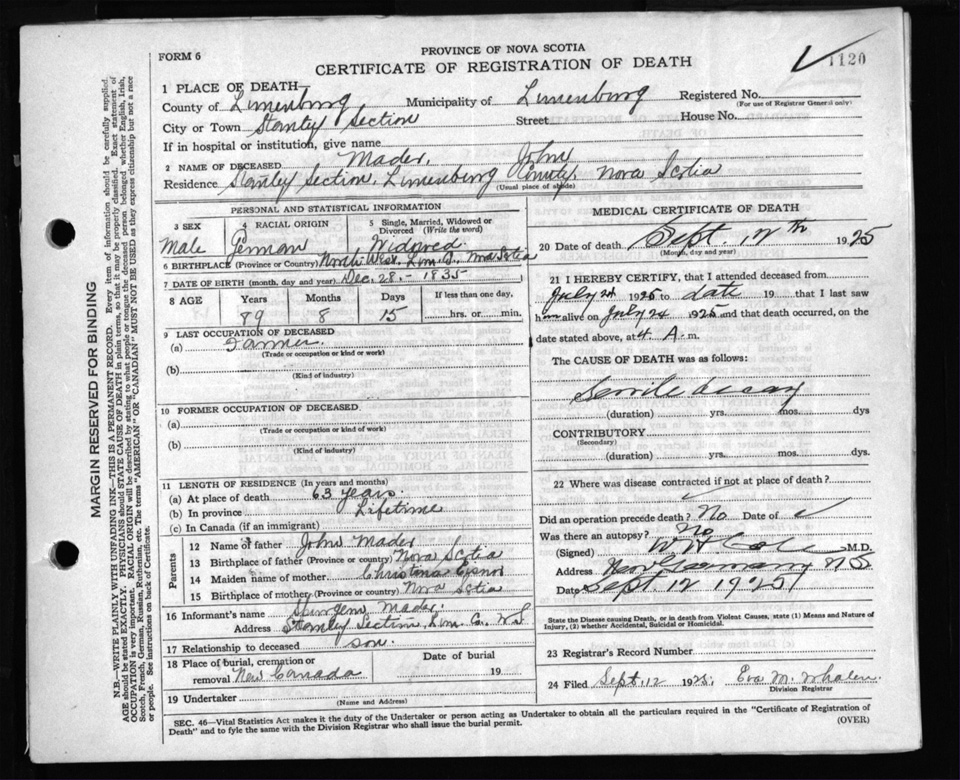 FORM 6
PROVINCE OF NOVA SCOTIA
CERTIFICATE OF REGISTRATION OF DEATH
1120
1 PLACE OF DEATH
County of Lunenburg Municipality of Lunenburg Registered No.
(For use of Registrar General only)
City or Town Stanley Section Street House No.
If in hospital or institution, give name
2 NAME OF DECEASED Mader, John
Residence Stanley Section, Lunenburg County, Nova Scotia
(Usual place of abode)
PERSONAL AND STATISTICAL INFORMATION
3 SEX
Male
4 RACIAL ORIGIN
German
5 Single, Married, Widowed or Divorced (Write the word)
Widowed
6 BIRTHPLACE (Province or Country) North West, Lun. Co., Nova Scotia
7 DATE OF BIRTH (month, day and year) Dec. 28 - 1835
8 AGE Years Months Days If less than one day,
89 8 15 hrs. or min.
9 LAST OCCUPATION OF DECEASED
(a) Farmer
(Trade or occupation or kind of work)
(b)
(Kind of industry)
10 FORMER OCCUPATION OF DECEASED
(a)
(Trade or occupation or kind of work)
(b)
(Kind of industry)
11 LENGTH OF RESIDENCE (In years and months)
(a) At place of death 63 years.
(b) In province Lifetime
(c) In Canada (if an immigrant)
Parents
12 Name of father John Mader
13 Birthplace of father (Province or country) Nova Scotia
14 Maiden name of mother Christina
15 Birthplace of mother (Province or country) Nova Scotia
16 Informant's name Spurgeon Mader
Address Stanley Section, Lun. Co., N.S.
17 Relationship to deceased son.
18 Place of burial, cremation or removal New Canada Date of burial 19
19 Undertaker
(Name and Address)
MEDICAL CERTIFICATE OF DEATH
20 Date of death Sept. 12th 1925
(Month, day and year)
21 I HEREBY CERTIFY, that I attended deceased from
July 24 1925 to date 19 that I last saw
him alive on July 24 1925 and that death occurred, on the
date stated above, at 4 A. m.
The CAUSE OF DEATH was as follows:
Senile decay
(duration) yrs. mos. dys
CONTRIBUTORY
(Secondary)
(duration) yrs. mos. dys.
22 Where was disease contracted if not at place of death?
Did an operation precede death? No Date of
Was there an autopsy? No
(Signed) M.D.
Address New Germany NS
Date Sept 12 1925
State the Disease causing Death, or in death from Violent Causes, state (1) Means and Nature of Injury, (2) whether Accidental, Suicidal or Homicidal.
23 Registrar's Record Number
24 Filed Sept. 12 1925; Eva M. Whalen
Division Registrar
SEC. 46—Vital Statistics Act makes it the duty of the Undertaker or person acting as Undertaker to obtain all the particulars required in the "Certificate of Registration of
Death" and to fyle the same with the Division Registrar who shall issue the burial permit.
(OVER)
MARGIN RESERVED FOR BINDING
N.B.—WRITE PLAINLY WITH UNFADING INK—THIS IS A PERMANENT RECORD. Every item of information should be carefully supplied.
AGE should be stated EXACTLY. PHYSICIANS should STATE CAUSE OF DEATH in plain terms, so that it may be properly classified. Exact statement of
OCCUPATION is very important. RACIAL ORIGIN will be described by stating to what people or tongue the deceased person belonged whether English, Irish,
Scotch, French, German, Russian, Ruthenian, etc. The terms "AMERICAN" or "CANADIAN" MUST NOT BE USED as they express citizenship but not a race
or people. See instructions on back of Certificate.